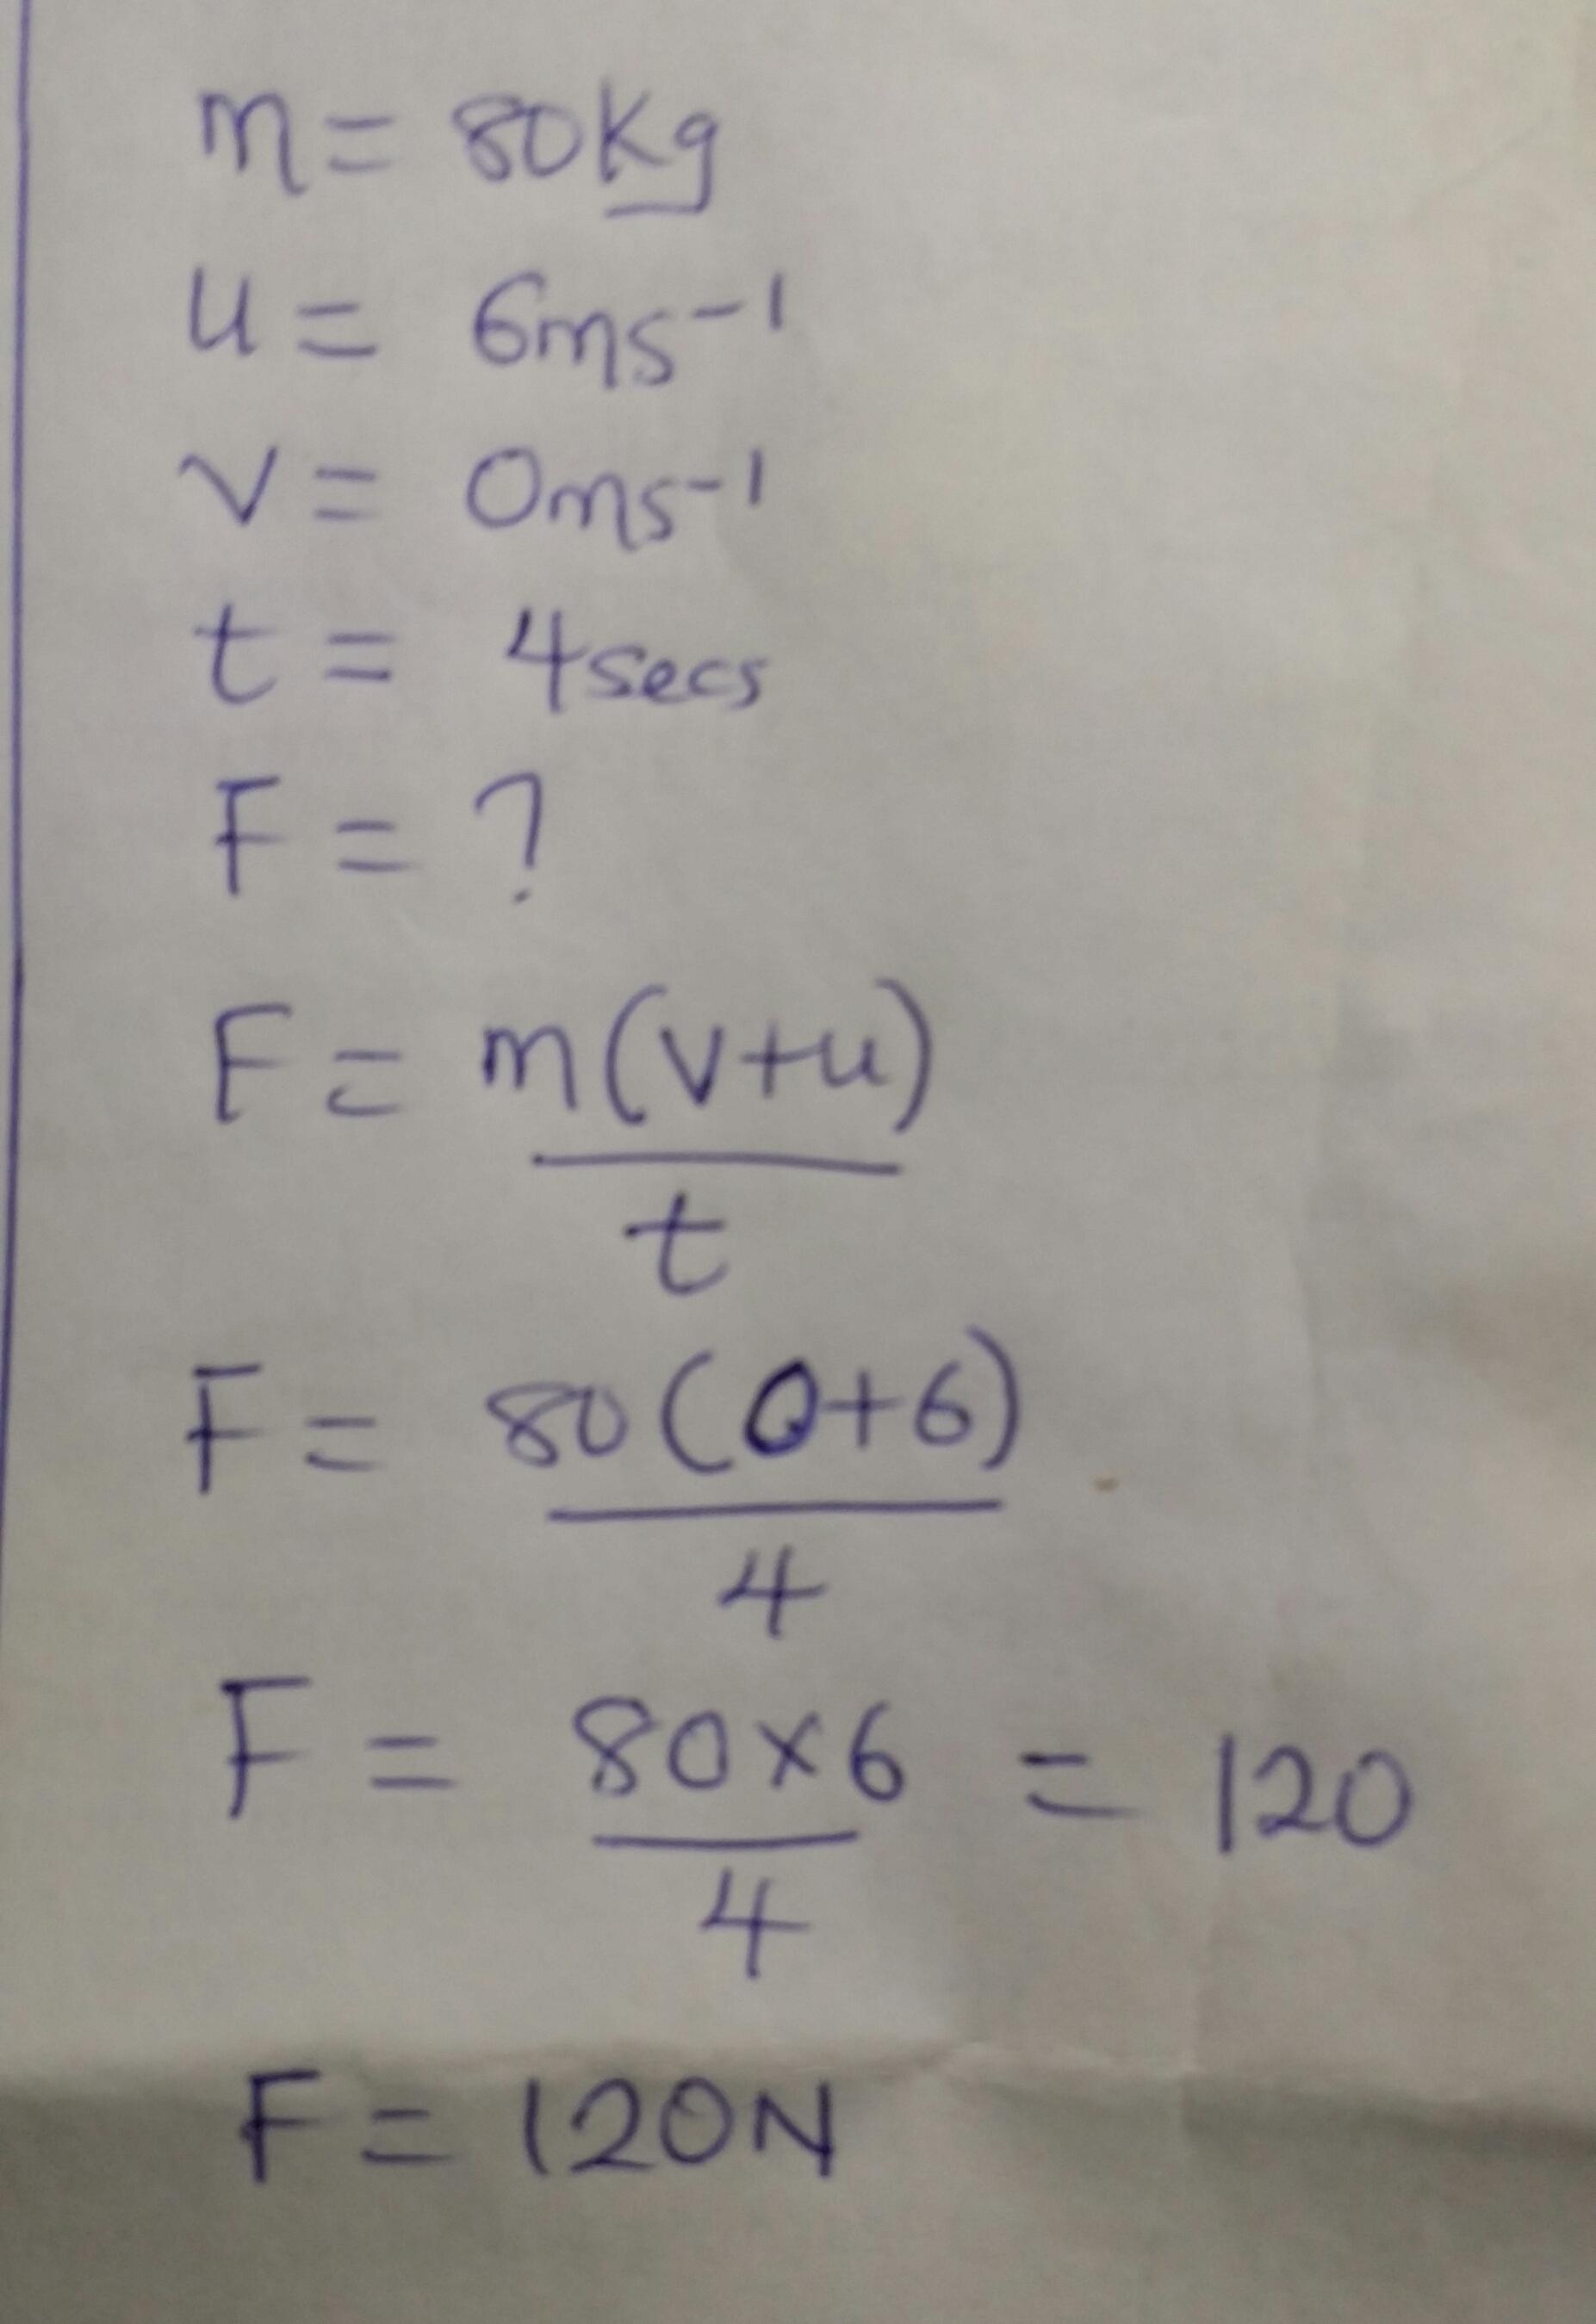 m = 80Kg
u = 6ms⁻¹
v = 0ms⁻¹
t = 4secs
F = ?
F = m(v+u)
t
F = 80(0+6)
4
F = 80×6 = 120
4
F = 120N